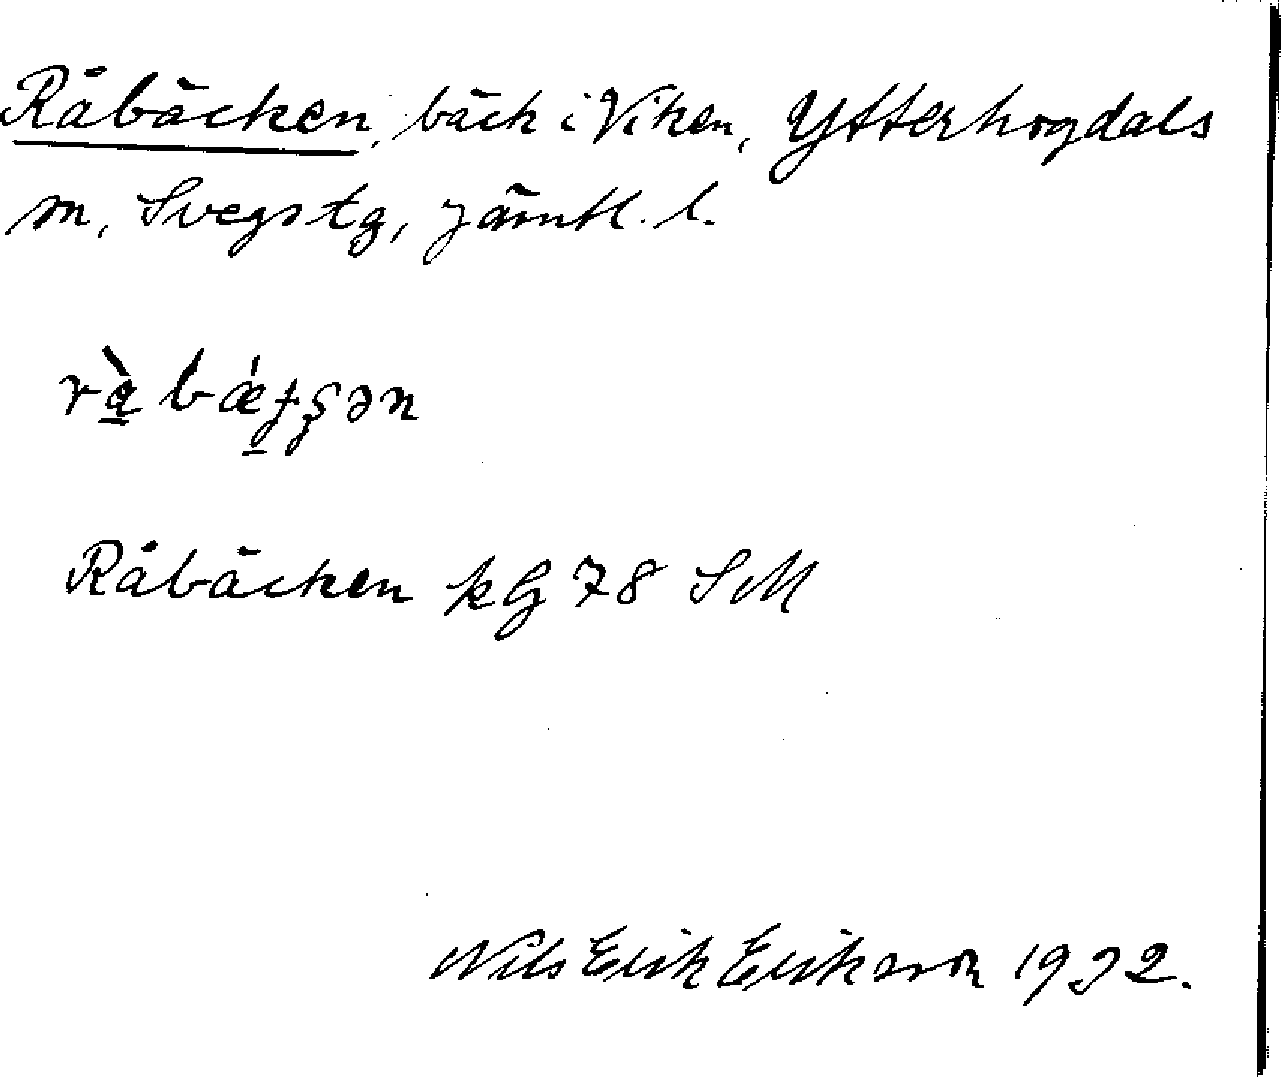 Råbäcken, bäck i Viken, Ytterhogdals
sn, Svegs tg, Jämtl. l.
Råbäcken kG 78 SM
Nils Erik Eriksson 1932.